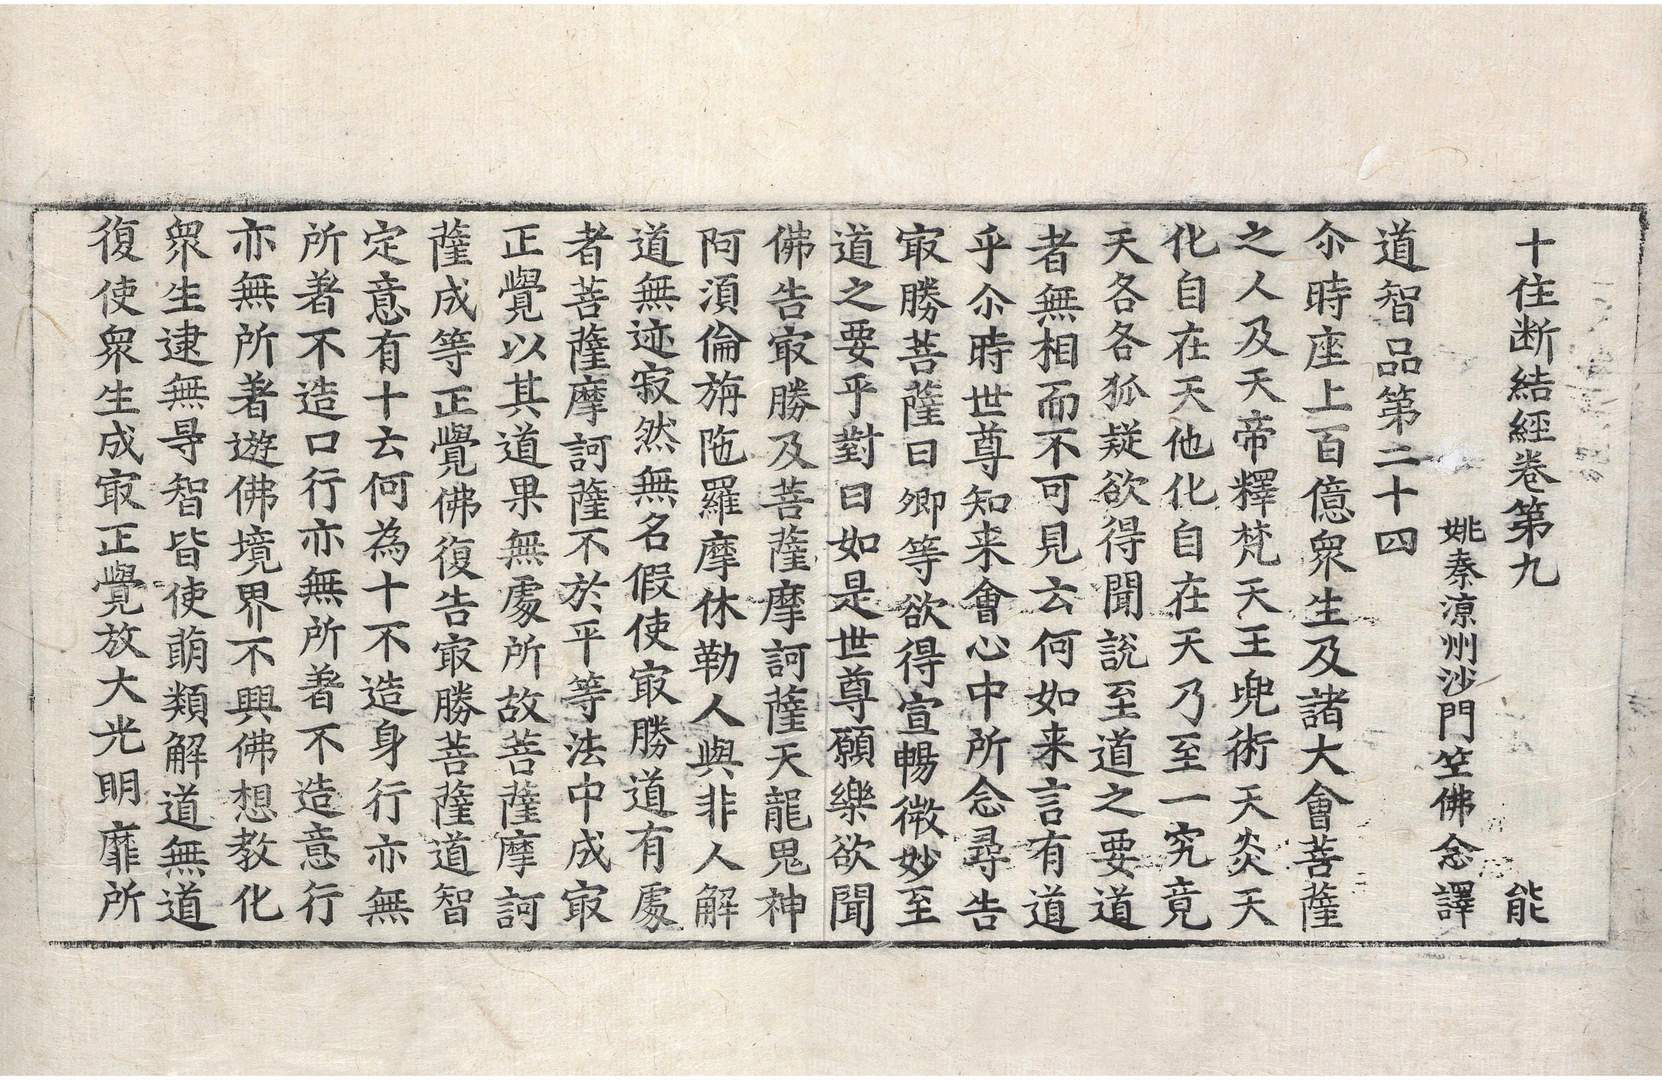 十住断結經卷第九 能
姚秦涼州沙門竺佛念譯
道智品第二十四
尒時座上百億衆生及諸大會菩薩
之人及天帝釋梵天王兜術天炎天
化自在天他化自在天乃至一究竟
天各各狐疑欲得聞說至道之要道
者無相而不可見云何如来言有道
乎尒時世尊知来會心中所念尋告
㝡勝菩薩曰卿等欲得宣暢微妙至
道之要乎對曰如是世尊願樂欲聞
佛告㝡勝及菩薩摩訶薩天龍鬼神
阿須倫旃陁羅摩休勒人與非人解
道無迹寂然無名假使㝡勝道有處
者菩薩摩訶薩不於平等法中成㝡
正覺以其道果無處所故菩薩摩訶
薩成等正覺佛復告㝡勝菩薩道智
定意有十云何為十不造身行亦無
所著不造口行亦無所著不造意行
亦無所著遊佛境界不興佛想教化
衆生逮無㝵智皆使萠類解道無道
復使衆生成㝡正覺放大光明靡所